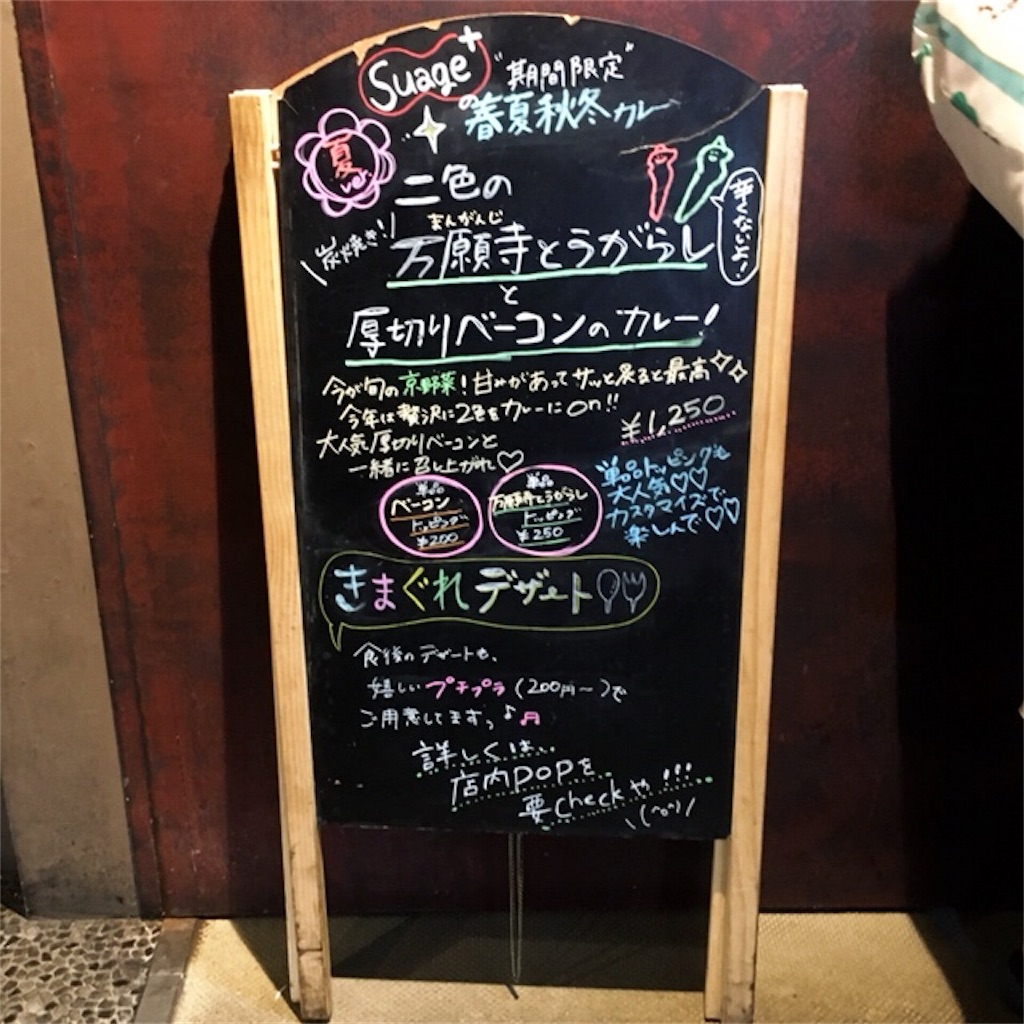 Suage+
"期間限定"
の春夏秋冬カレー
夏
ver.
二色の
まんがんじ
炭火焼き!
万願寺とうがらし
辛くないよ!
と
厚切りベーコンのカレー!
今が旬の京野菜!甘みがあってサッと煮ると最高
今年は贅沢に2色をカレーにon!!
¥1,250
大人気厚切りベーコンと
一緒に召し上がれ♡
単品
ベーコン
トッピング
¥200
単品
万願寺とうがらし
トッピング
¥250
単品トッピングも
大人気♡♡
カスタマイズで
楽しんで♡♡
きまぐれデザート
食後のデザートも、
嬉しいプチプラ(200円〜)で
ご用意してますっ♪♬
詳しくは、、
店内POPを
要checkや!!!
\(^o^)/